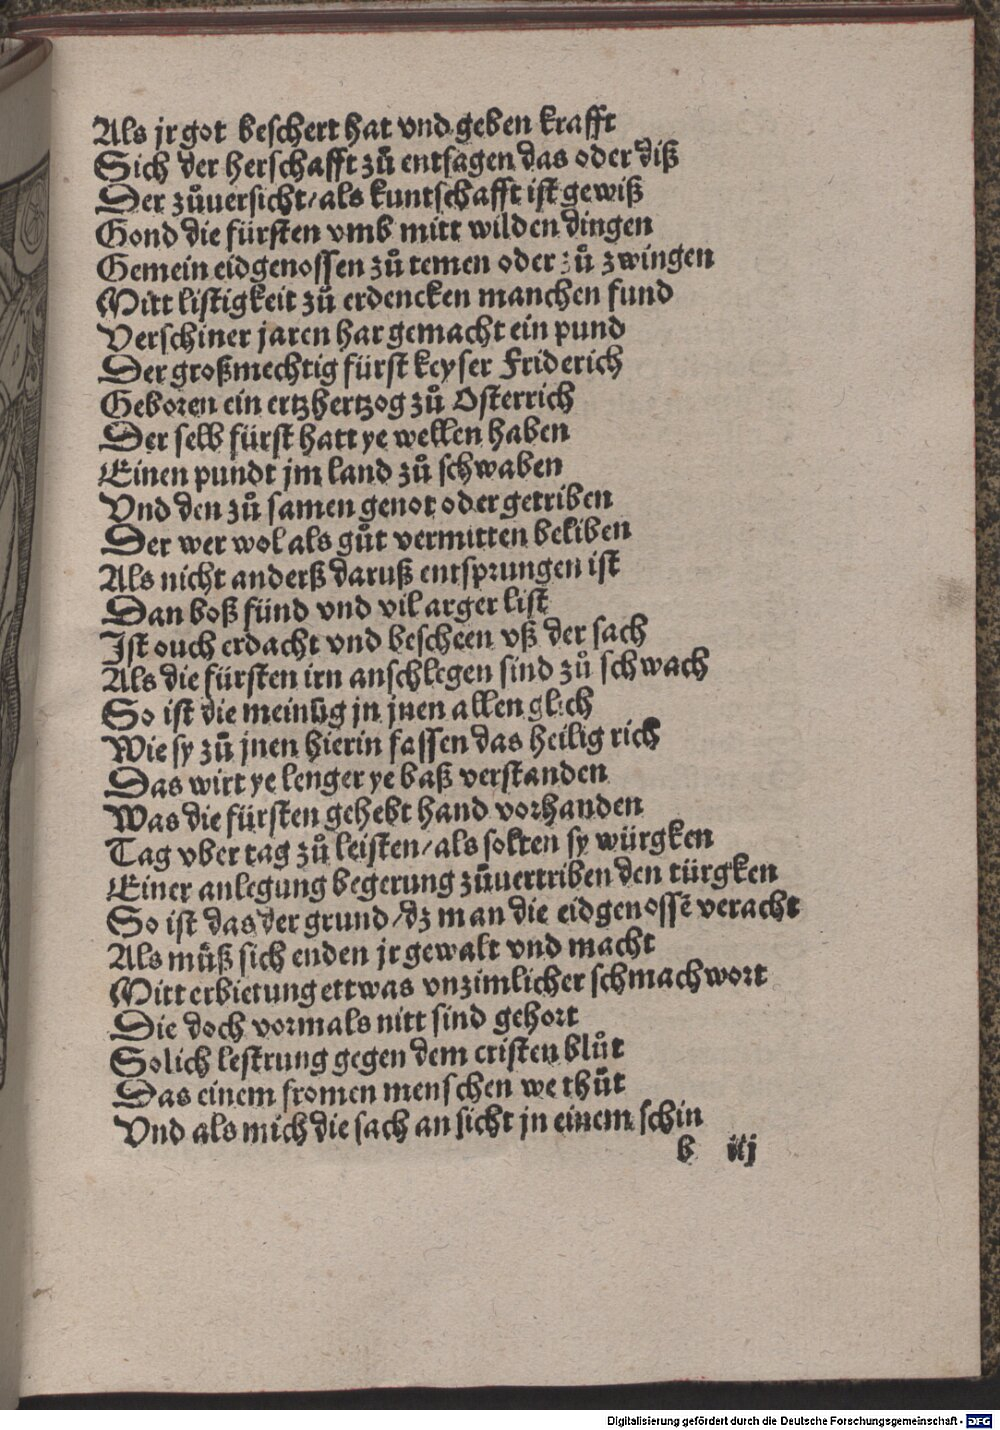 Als jr got beschert hat vnd geben krafft
Sich der herschafft zů entsagen das oder diß
Der zůuersicht/als kuntschafft ist gewiß
Gond die fürsten vmb mitt wilden dingen
Gemein eidgenossen zů temen oder zů zwingen
Mitt listigkeit zů erdencken manchen fund
Verschiner jaren har gemacht ein pund
Der großmechtig fürst keyser Friderich
Geboren ein ertzhertzog zů Osterrich
Der selb fürst hatt ye wellen haben
Einen pundt jm land zů schwaben
Vnd den zů samen genot oder getriben
Der wer wol als gůt vermitten beliben
Als nicht anderß daruß entsprungen ist
Dan boß fünd vnd vil arger list
Ist ouch erdacht vnd bescheen vß der sach
Als die fürsten irn anschlegen sind zů schwach
So ist die meinūg jn jnen allen glich
Wie sy zů jnen hierin fassen das heilig rich
Das wirt ye lenger ye baß verstanden
Was die fürsten gehebt hand vorhanden
Tag vber tag zů leisten/als solten sy würgken
Einer anlegung begerung zůuertriben den türgken
So ist das der grund/dz man die eidgenossē veracht
Als můß sich enden jr gewalt vnd macht
Mitt erbietung ettwas vnzimlicher schmachwort
Die doch vormals nitt sind gehort
Solich lestrung gegen dem cristen blůt
Das einem fromen menschen we thůt
Vnd als mich die sach an sicht jn einem schin
b iij
Digitalisierung gefördert durch die Deutsche Forschungsgemeinschaft - DFG